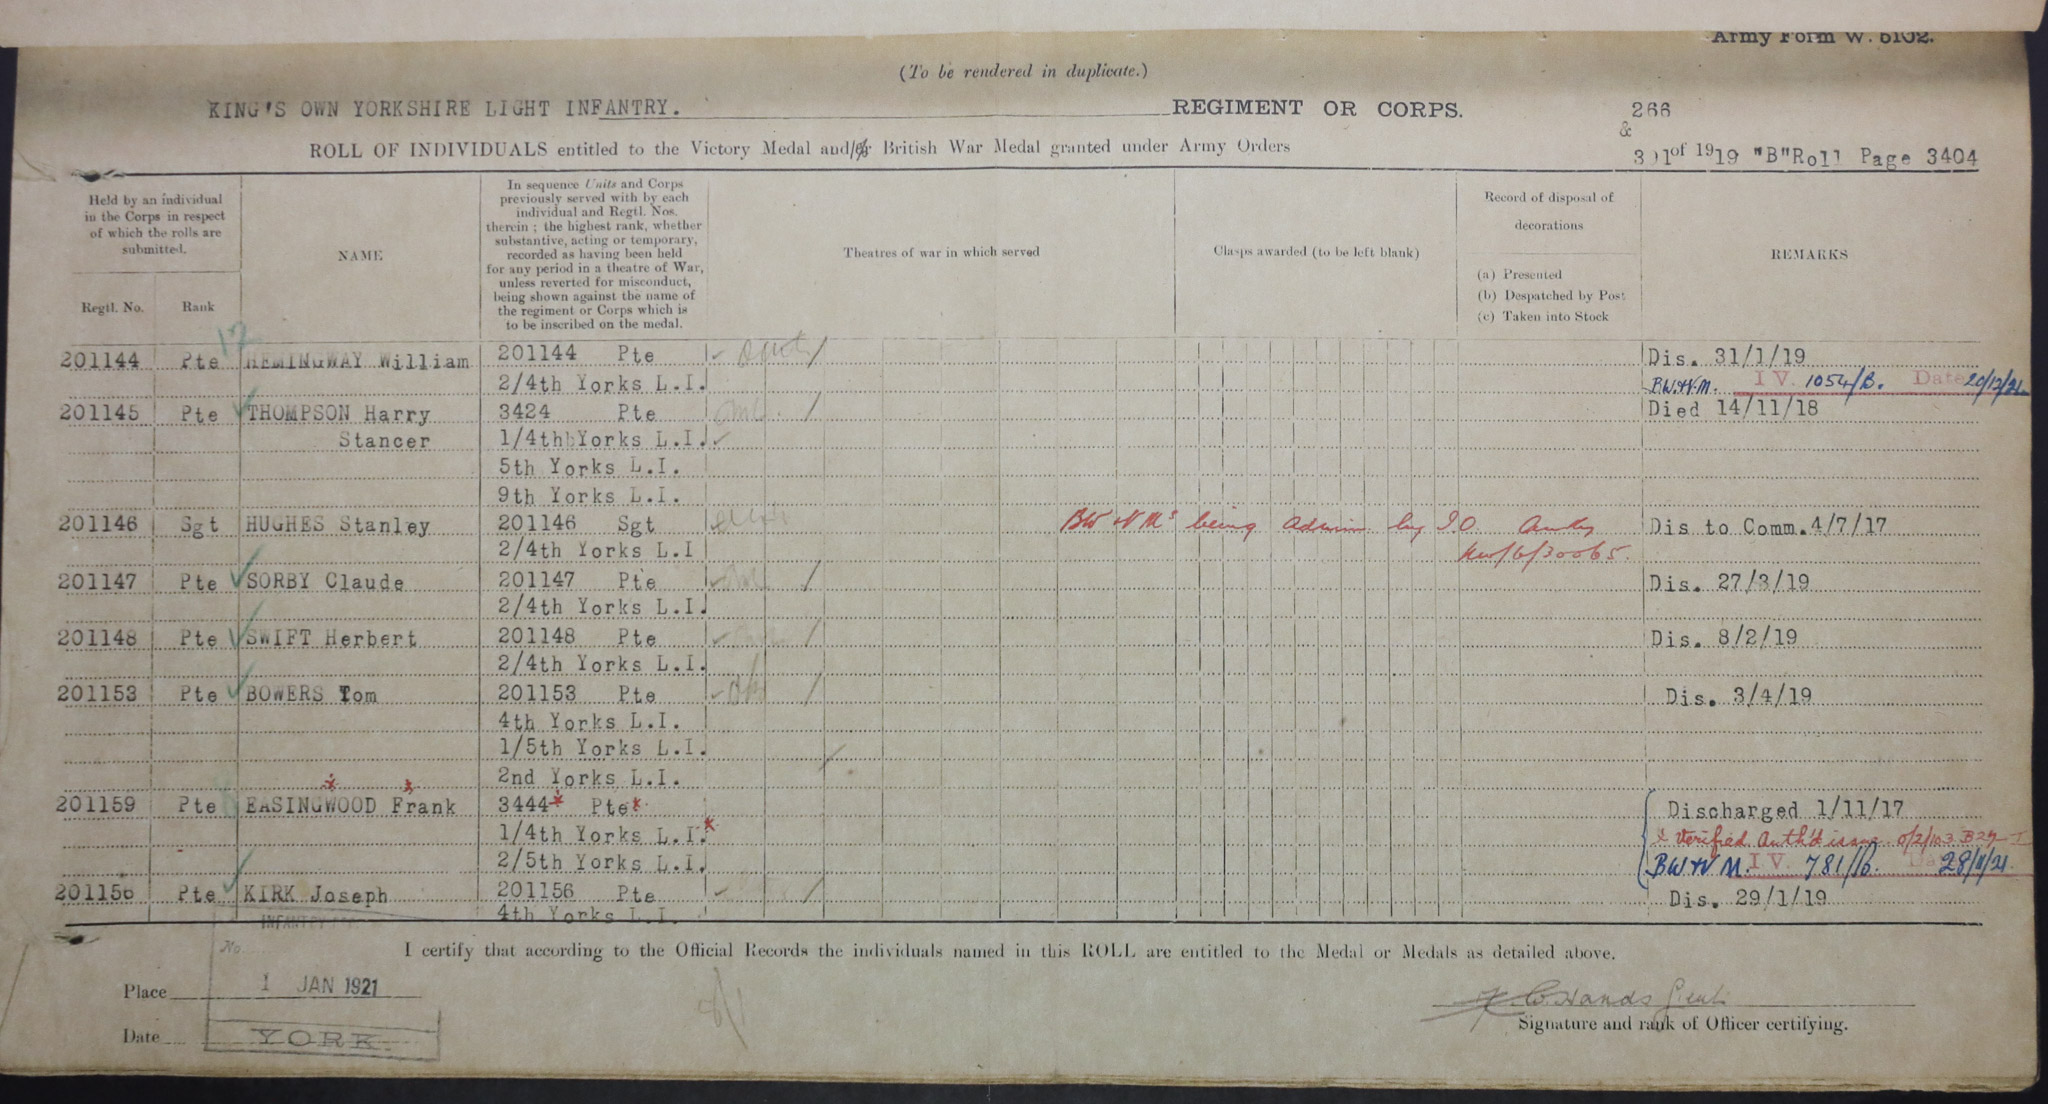 Army Form W. 5102.
(To be rendered in duplicate.)
KING'S OWN YORKSHIRE LIGHT INFANTRY. REGIMENT OR CORPS. 266
&
ROLL OF INDIVIDUALS entitled to the Victory Medal and/or British War Medal granted under Army Orders 301 of 1919 "B"Roll Page 3404
Held by an individual in the Corps in respect of which the rolls are submitted.
Regtl. No. Rank
NAME
In sequence Units and Corps
previously served with by each
individual and Regtl. Nos.
therein ; the highest rank, whether
substantive, acting or temporary,
recorded as having been held
for any period in a theatre of War,
unless reverted for misconduct,
being shown against the name of
the regiment or Corps which is
to be inscribed on the medal.
Theatres of war in which served
Clasps awarded (to be left blank)
Record of disposal of
decorations
(a) Presented
(b) Despatched by Post
(c) Taken into Stock
REMARKS
201144 Pte HEMINGWAY William 201144 Pte Dis. 31/1/19
2/4th Yorks L.I. B.W.&V.M. IV. 1054/B. Date 20/12/21
201145 Pte THOMPSON Harry 3424 Pte Died 14/11/18
Stancer 1/4th Yorks L.I.
5th Yorks L.I.
9th Yorks L.I.
201146 Sgt HUGHES Stanley 201146 Sgt BW & V Ms being Admin by I.O. Auth Dis to Comm. 4/7/17
2/4th Yorks L.I /6/30065.
201147 Pte SORBY Claude 201147 Pte Dis. 27/3/19
2/4th Yorks L.I.
201148 Pte SWIFT Herbert 201148 Pte Dis. 8/2/19
2/4th Yorks L.I.
201153 Pte BOWERS Tom 201153 Pte Dis. 3/4/19
4th Yorks L.I.
1/5th Yorks L.I.
2nd Yorks L.I.
201159 Pte EASINGWOOD Frank 3444 Pte Discharged 1/11/17
1/4th Yorks L.I. x Verified. Auth'd issue
2/5th Yorks L.I. BW & V M. IV. 781/B. 28/11/21.
201156 Pte KIRK Joseph 201156 Pte Dis. 29/1/19
4th Yorks L.I.
INFANTRY
No.
I certify that according to the Official Records the individuals named in this ROLL are entitled to the Medal or Medals as detailed above.
Place 1 JAN 1921
Date YORK
Signature and rank of Officer certifying.